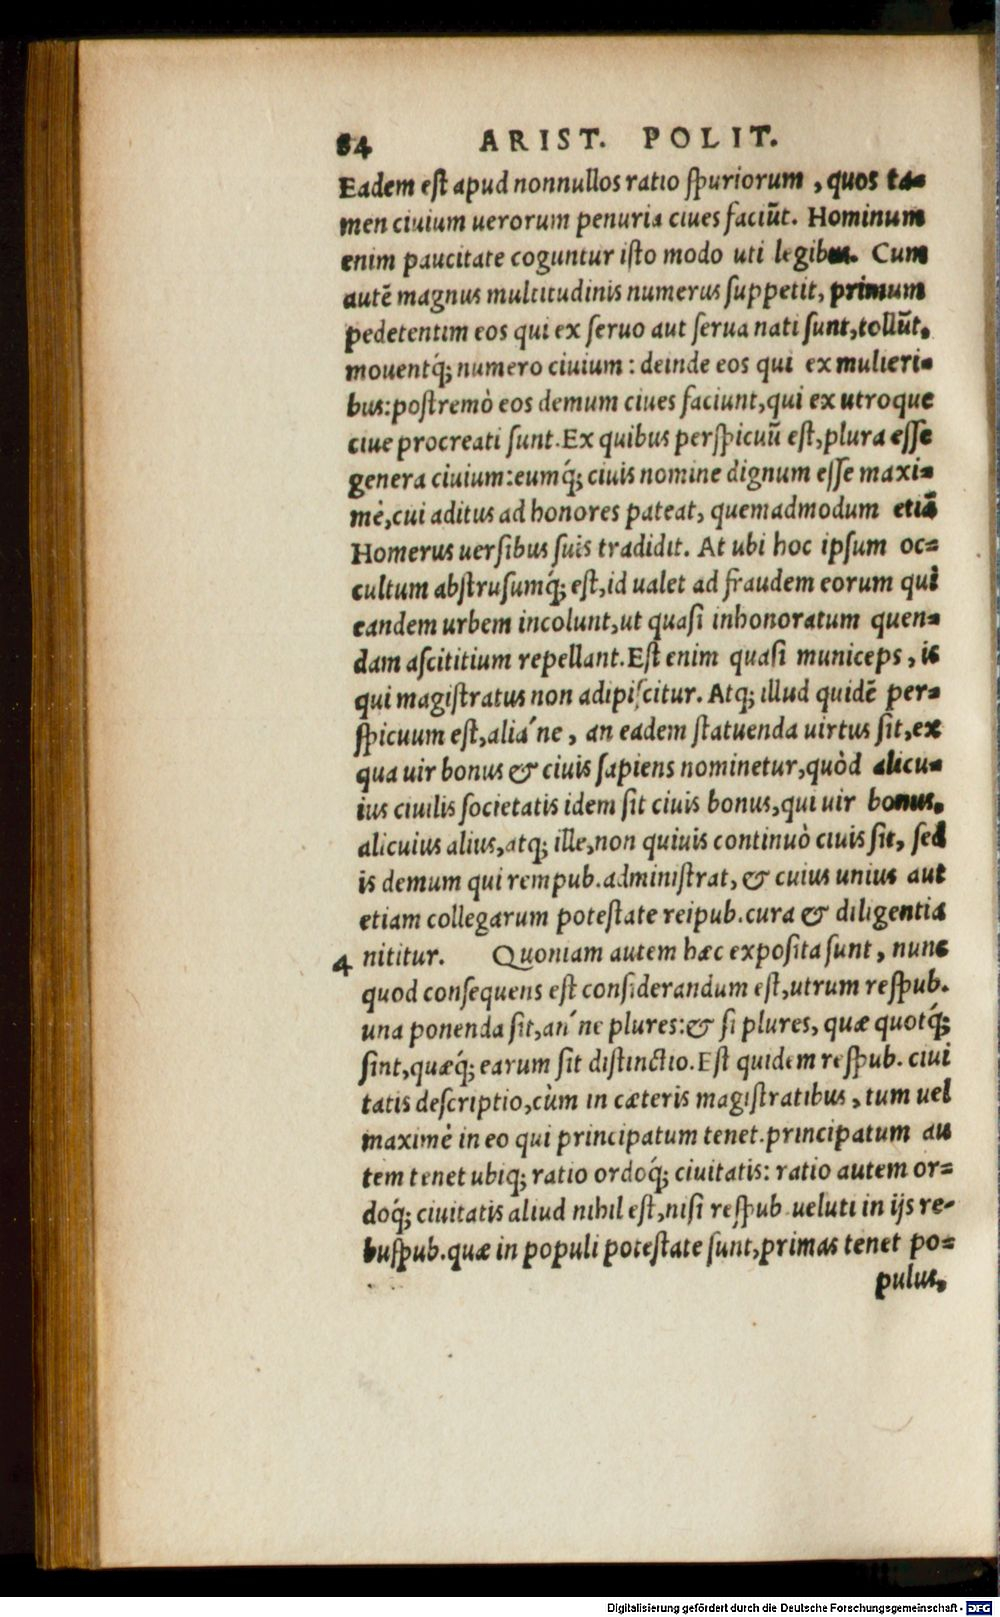 84 ARIST. POLIT.
Eadem est apud nonnullos ratio spuriorum, quos ta=
men ciuium uerorum penuria ciues faciūt. Hominum
enim paucitate coguntur isto modo uti legibus. Cum
autē magnus multitudinis numerus suppetit, primum
pedetentim eos qui ex seruo aut serua nati sunt, tollūt,
mouentq́; numero ciuium: deinde eos qui ex mulieri=
bus: postremò eos demum ciues faciunt, qui ex utroque
ciue procreati sunt. Ex quibus perspicuū est, plura esse
genera ciuium: eumq́; ciuis nomine dignum esse maxi=
mè, cui aditus ad honores pateat, quemadmodum etiā
Homerus uersibus suis tradidit. At ubi hoc ipsum oc=
cultum abstrusumq́; est, id ualet ad fraudem eorum qui
eandem urbem incolunt, ut quasi inhonoratum quen=
dam ascititium repellant. Est enim quasi municeps, is
qui magistratus non adipiscitur. Atq; illud quidē per=
spicuum est, alia´ne, an eadem statuenda uirtus sit, ex
qua uir bonus & ciuis sapiens nominetur, quòd alicu=
ius ciuilis societatis idem sit ciuis bonus, qui uir bonus,
alicuius alius, atq; ille, non quiuis continuò ciuis sit, sed
is demum qui rempub. administrat, & cuius unius aut
etiam collegarum potestate reipub. cura & diligentia
4 nititur. Quoniam autem hæc exposita sunt, nunc
quod consequens est considerandum est, utrum respub.
una ponenda sit, an´ne plures: & si plures, quæ quotq́;
sint, quæq́; earum sit distinctio. Est quidem respub. ciui
tatis descriptio, cùm in cæteris magistratibus, tum uel
maximè in eo qui principatum tenet. principatum au
tem tenet ubiq; ratio ordoq́; ciuitatis: ratio autem or=
doq́; ciuitatis aliud nihil est, nisi respub. ueluti in ijs re=
buspub. quæ in populi potestate sunt, primas tenet po=
pulus,
Digitalisierung gefördert durch die Deutsche Forschungsgemeinschaft - DFG